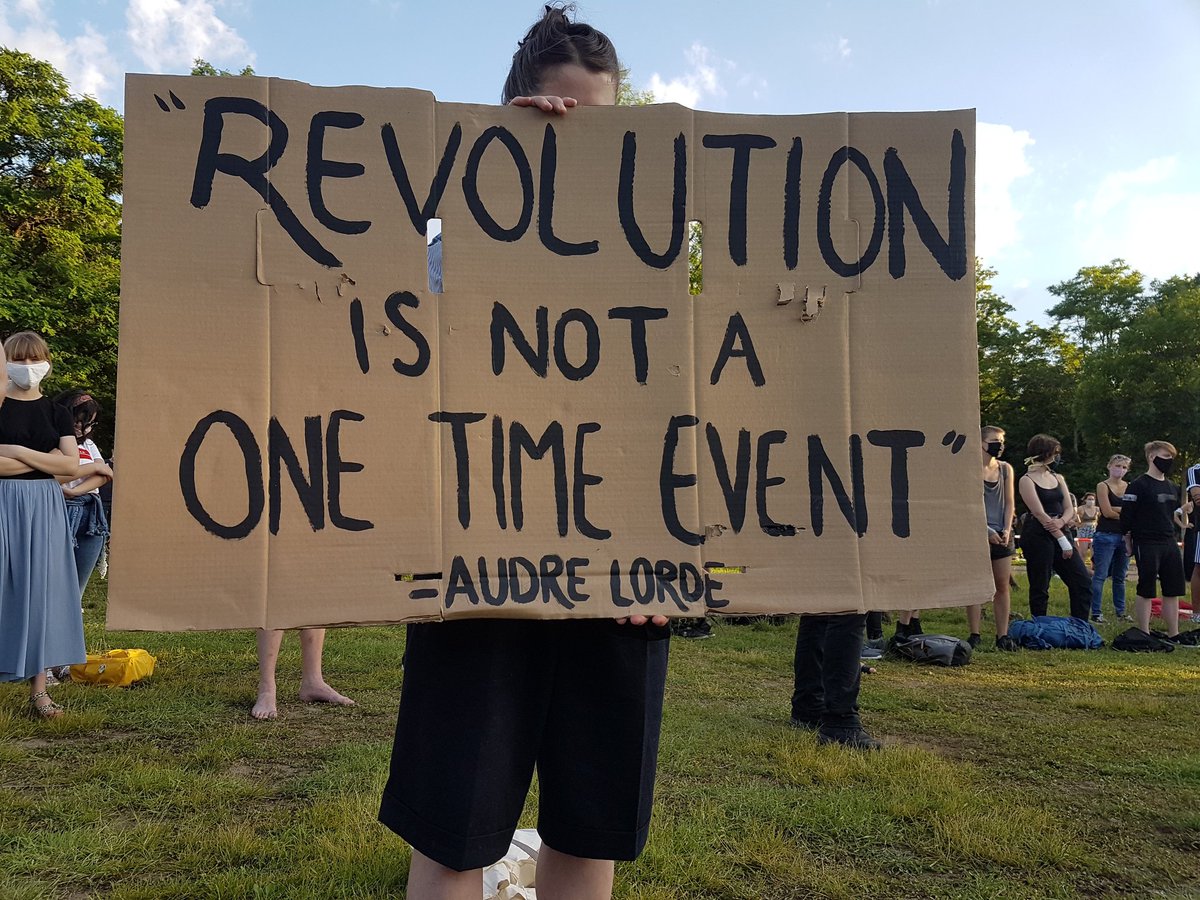 "REVOLUTION
IS NOT A
ONE TIME EVENT"
- AUDRE LORDE